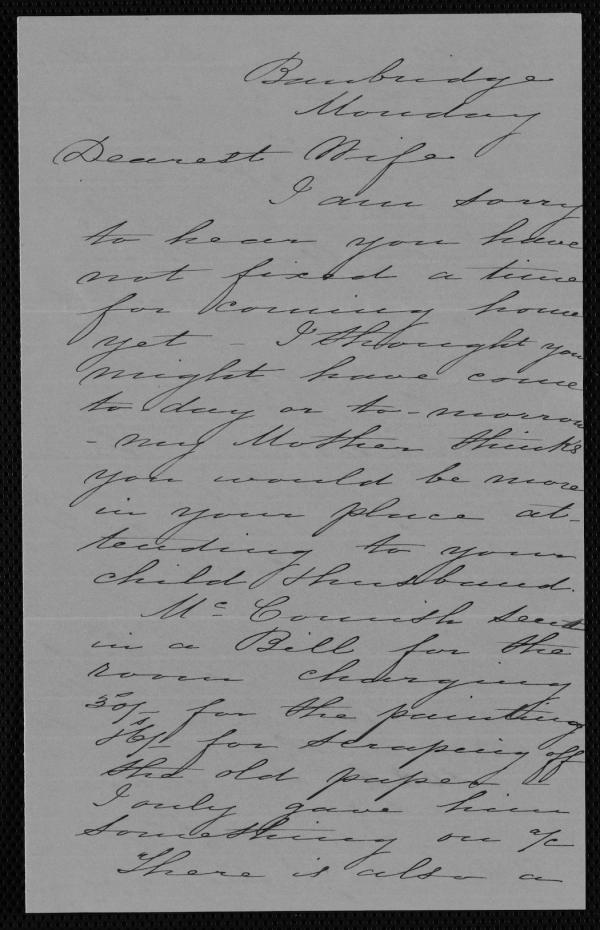 Banbridge
Monday
Dearest Wife
I am sorry
to hear you have
not fixed a time
for coming home
yet - I thought you
might have come
to day or to-morrow
- my Mother thinks
you would be more
in your place at-
tending to your
child & husband.
Mc Comish sent
in a Bill for the
room charging
30/- for the painting
& 6/- for scraping off
the old paper -
I only gave him
something on a/c
There is also a